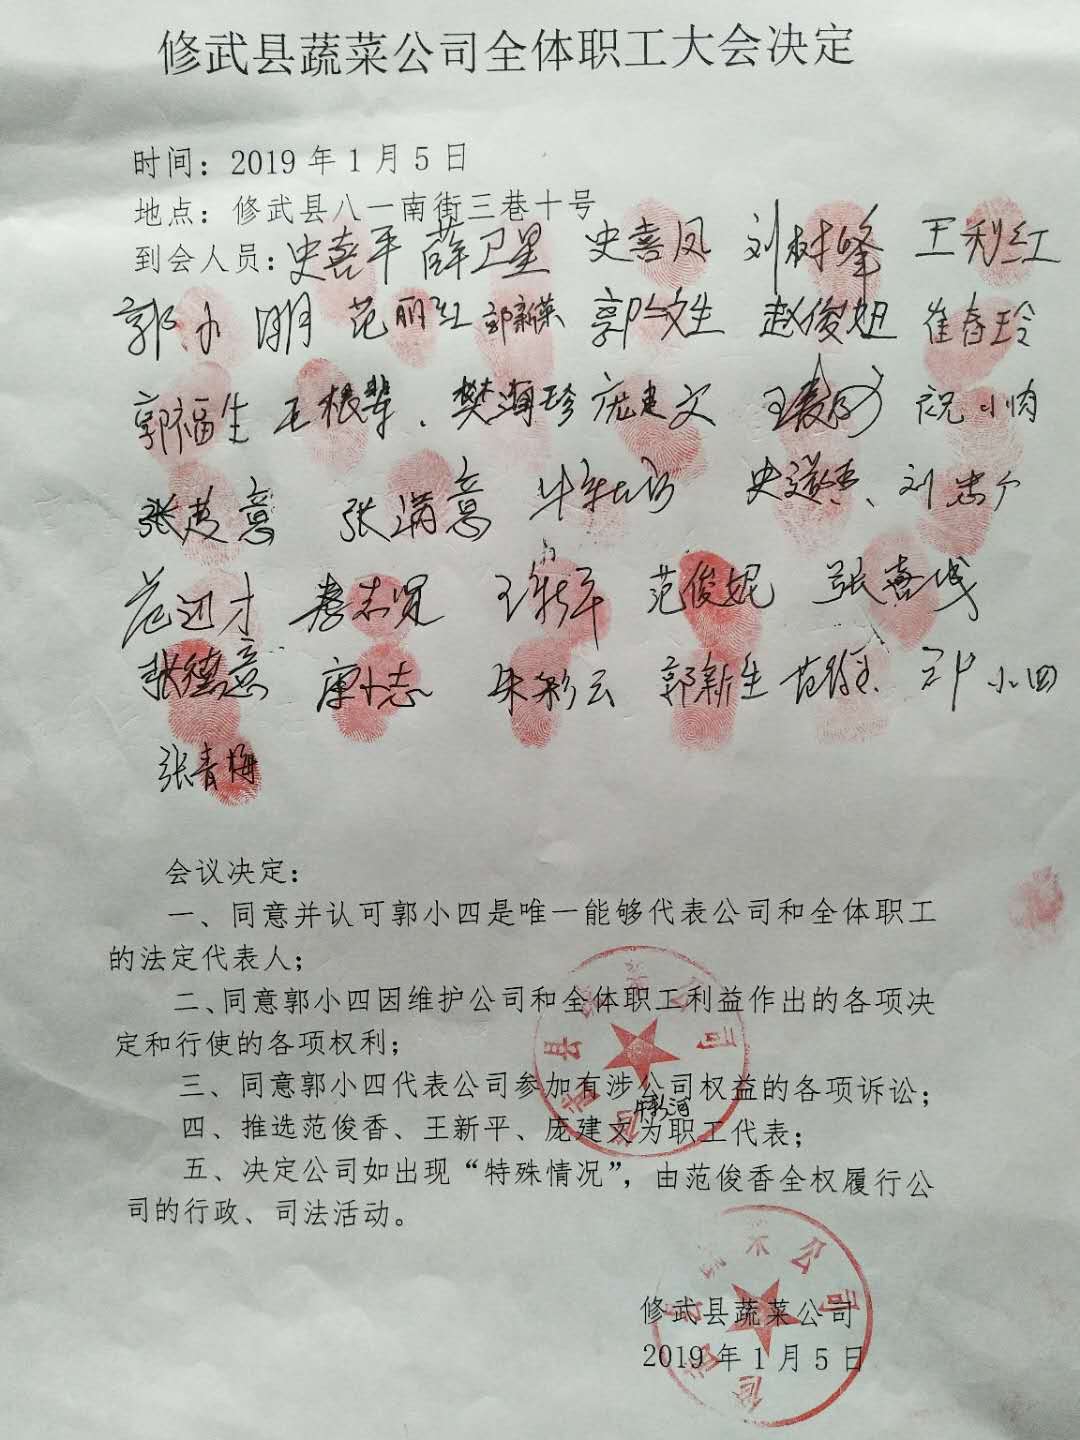 修武县蔬菜公司全体职工大会决定
时间：2019年1月5日
地点：修武县八一南街三巷十号
到会人员：史喜平 薛卫星 史喜凤 刘树峰 王利红
郭小明 范丽红 郭新荣 郭文生 赵俊妞 崔春玲
郭福生 毛根荣、樊海珍 庞建文 祝小肉
张茂意 张满意 刘忠个
范迎才 秦志贤 王新平 范俊妮 张喜成
张德意 康小志 朱彩云 郭新生 郭小四
张青梅
会议决定：
一、同意并认可郭小四是唯一能够代表公司和全体职工
的法定代表人；
二、同意郭小四因维护公司和全体职工利益作出的各项决
定和行使的各项权利；
三、同意郭小四代表公司参加有涉公司权益的各项诉讼；
四、推选范俊香、王新平、庞建文为职工代表；
五、决定公司如出现“特殊情况”，由范俊香全权履行公
司的行政、司法活动。
修武县蔬菜公司
2019年1月5日